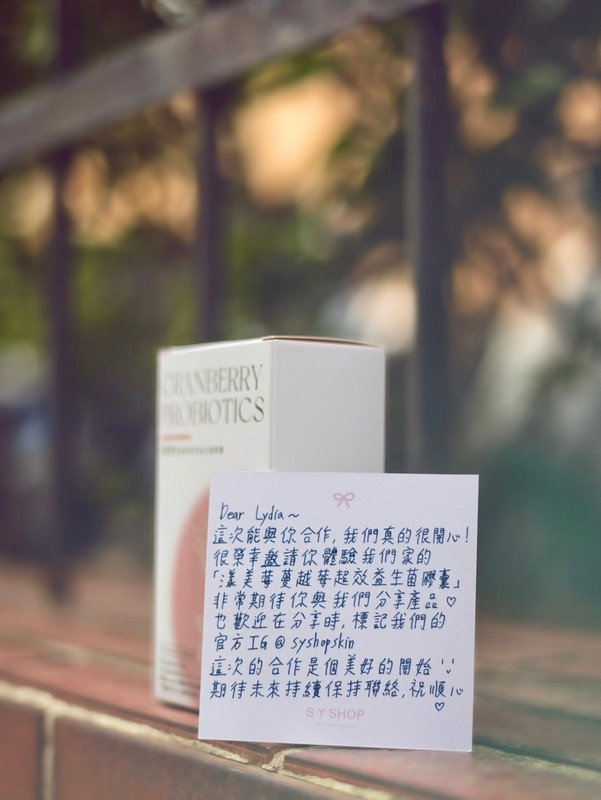 CRANBERRY
PROBIOTICS
Dear Lydia~
這次能與你合作,我們真的很開心!
很榮幸邀請你體驗我們家的
「漾美莓蔓越莓超效益生菌膠囊」
非常期待你與我們分享產品♡
也歡迎在分享時,標記我們的
官方IG @ syshopskin
這次的合作是個美好的開始
期待未來持續保持聯絡,祝順心
♡
S·Y SHOP